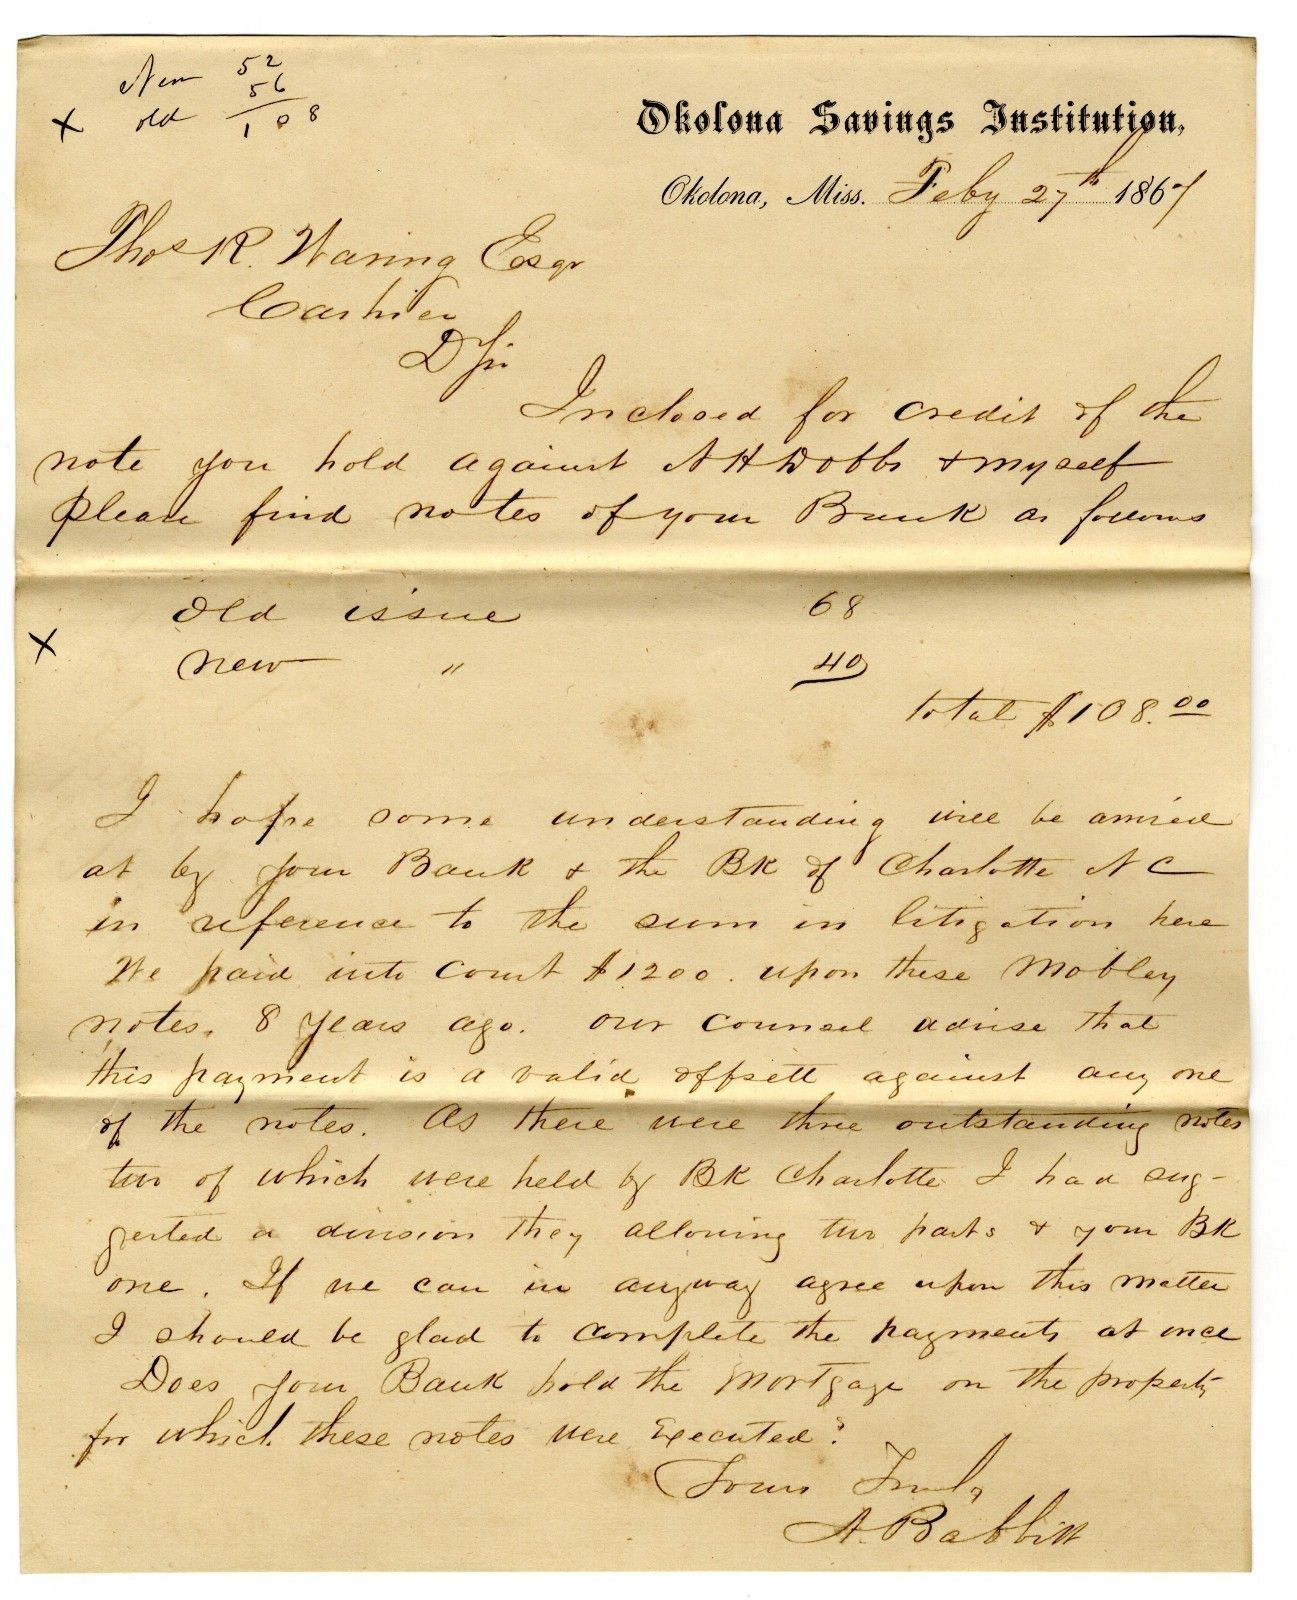 New 52
56
x old 108
Okolona Savings Institution,
Okolona, Miss. Feby 27th 1867
Thos R. Waring Esqr
Cashier
D Sir
Inclosed for credit of the
note you hold against A H Dobbs & myself
please find notes of your Bank as follows
old issue 68
x new " 40
total $108.00
I hope some understanding will be arrived
at by your Bank & the BK of Charlotte N C
in reference to the sum in litigation here
We paid into Court $1200. upon these Mobley
notes. 8 years ago. our counsel advise that
this payment is a valid offsett against any one
of the notes. As there were three outstanding notes
two of which were held by BK Charlotte I had sug-
gested a division they allowing two parts & your BK
one. If we can in anyway agree upon this matter
I should be glad to complete the payments at once
Does your Bank hold the Mortgage on the property
for which these notes were Executed?
Yours Truly
A. Babbitt